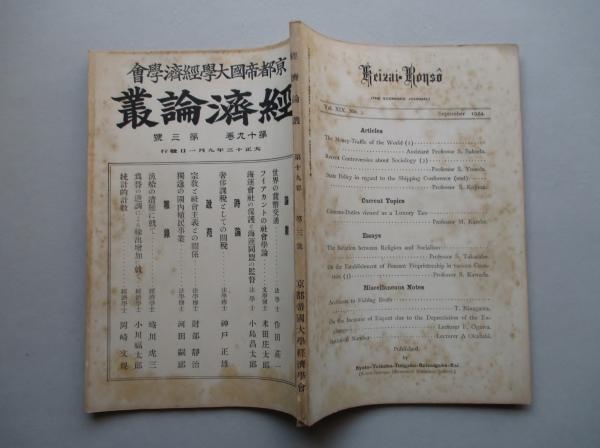 京都帝國大學經濟學會
經濟論叢
第十九卷 第三號
大正十三年九月一日發行
論叢
世界の貨幣交通 法學士 作田莊一
フィアカントの社會學論 文學博士 米田庄太郎
海運會社の保護と海運同盟の監督 法學士 小島昌太郎
時論
奢侈課税としての關税 法學博士 神戸正雄
說苑
宗敎と社會主義との關係 法學博士 財部靜治
獨逸の國內植民事業 法學博士 河田嗣郎
雜錄
漁船の遭難に就て 經濟學士 蜷川虎三
爲替の低落による輸出增加に就て 經濟學士 小川福太郎
統計的計數 經濟學士 岡崎文規
經濟論叢 第十九卷 第三號 京都帝國大學經濟學會
Keizai-Ronsô
(THE ECONOMIC JOURNAL)
Vol. XIX, No. September 1924.
Articles
The Money-Traffic of the World (2)
Assistant Professor S. Sakuda.
Recent Controversy about Sociology (2)
Professor S. Yoneda.
State Policy in regard to the Shipping Conference (end)
Professor S. Kojima.
Current Topics
Custom-Duties viewed as a Luxury Tax
Professor M. Kambe.
Essays
The Relation between Religion and Socialism
Professor S. Takarabe.
On the Establishment of Peasant Proprietorship in various Countries (3)
Professor S. Kawada.
Miscellaneous Notes
Accidents to Fishing Boats
T. Ninagawa.
On the Increase of Export due to the Depreciation of the Exchange
Lecturer F. Ogawa.
Statistical Number Lecturer A. Okazaki.
Published
by
Kyoto-Teikoku-Daigaku-Keizaigaku-Kai